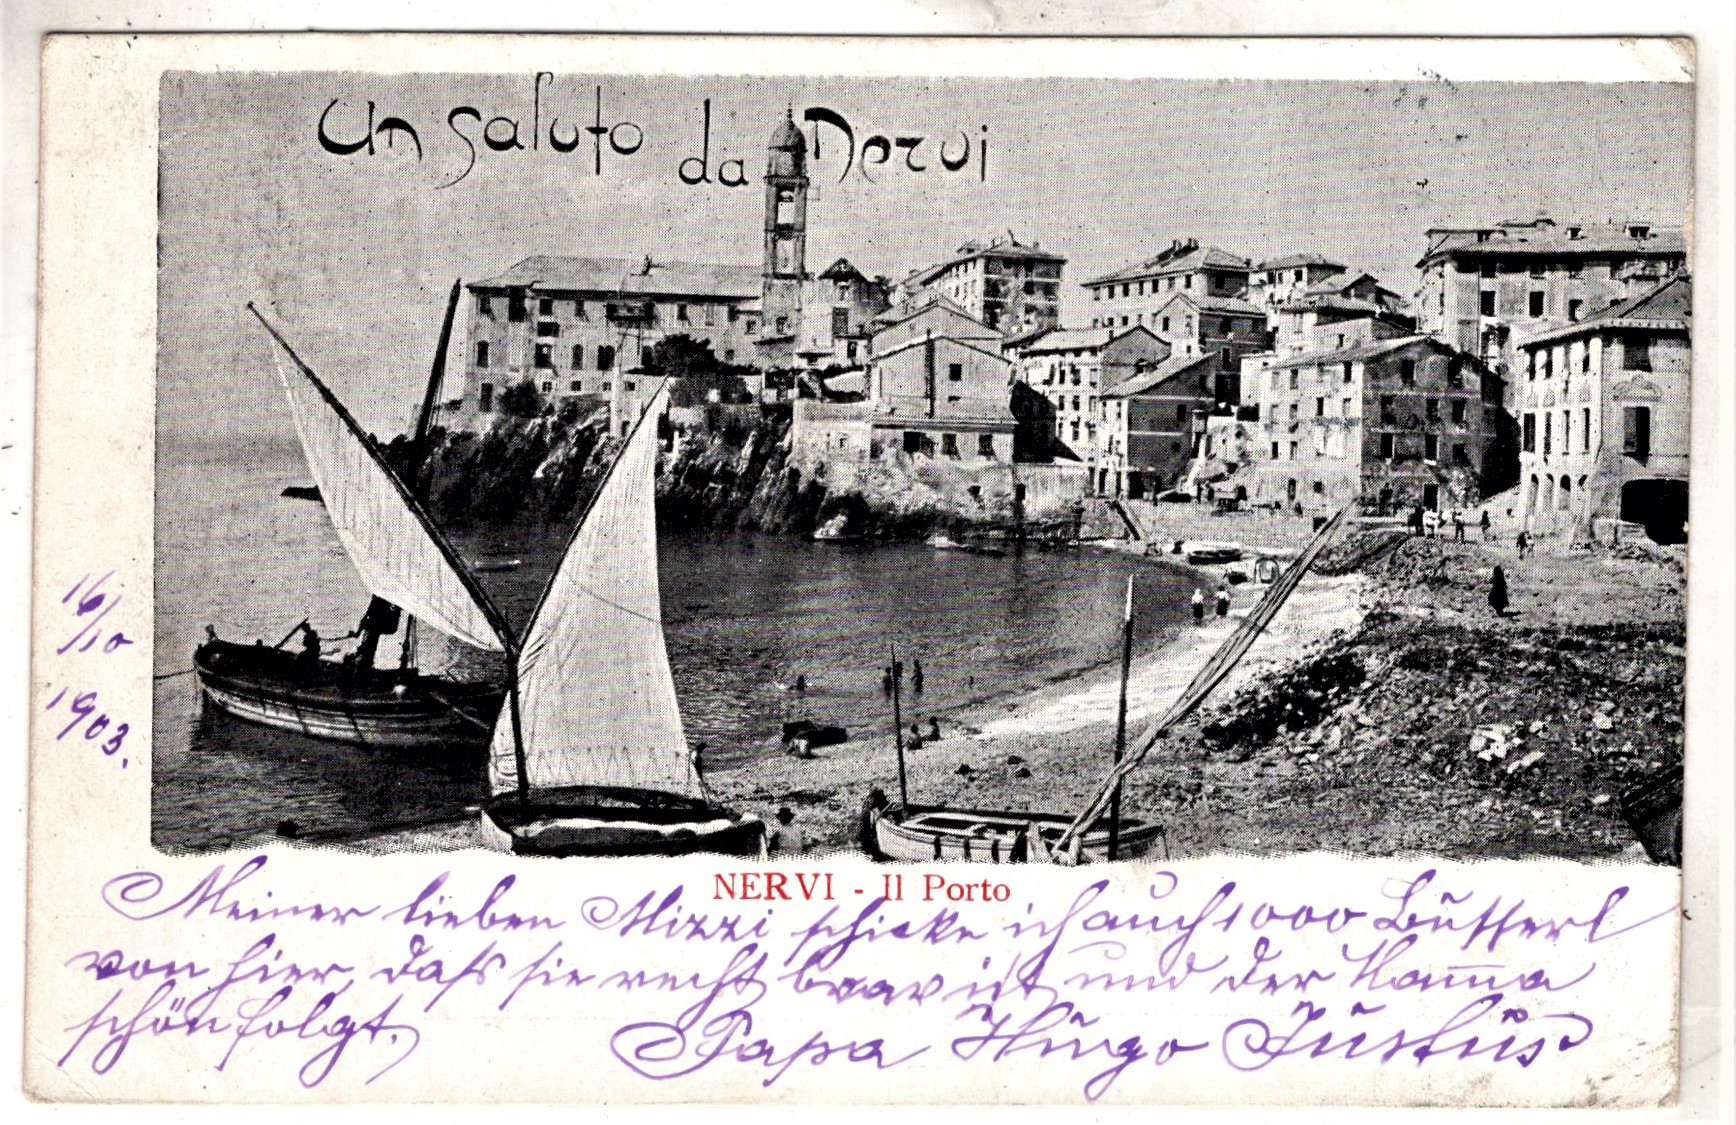 Un saluto da Nervi
16/10
1903.
NERVI - Il Porto
Meiner lieben Mizzi schicke ich auch 1000 Bussерl
von hier, dass sie recht brav ist und der Mama
schön folgt.
Papa Hugo Justus